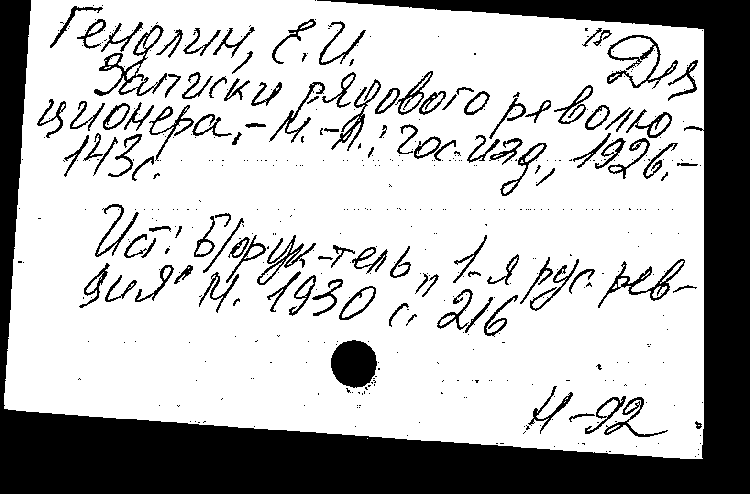 Гендлин, Е.И.
18 Дец
Записки рядового револю-
ционера.-М.-Л.: Гос. изд., 1926.-
143с.
Ист: Б/ф рук-тель „1-я рус. рев-
ция" М. 1930 с. 216
Н-92